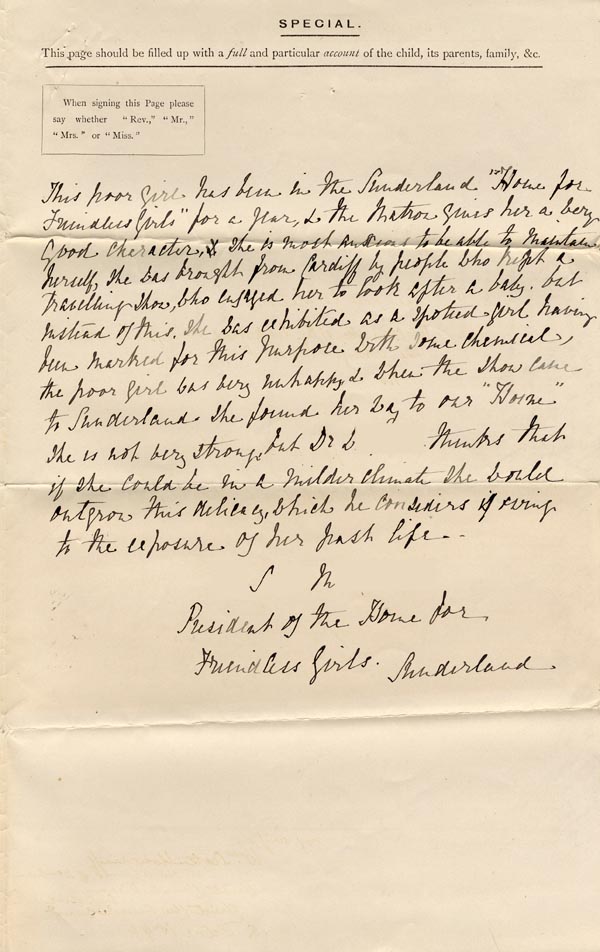 SPECIAL.
This page should be filled up with a full and particular account of the child, its parents, family, &c.
When signing this Page please
say whether "Rev.," "Mr.,"
"Mrs." or "Miss."
This poor girl has been in the Sunderland "Home for
Friendless Girls" for a year, & the Matron gives her a very
good character, & She is most anxious to be able to maintain
herself, She was brought from Cardiff by people who kept a
travelling show, who engaged her to look after a baby. but
instead of this, She was exhibited as a spotted girl having
been marked for this purpose with some chemical,
the poor girl was very unhappy & when the Show came
to Sunderland She found her way to our "Home"
She is not very strong, but Dr L thinks that
if she could be in a milder climate She would
outgrow this delicacy, which he considers is owing
to the exposure of her past life -
S M
President of the Home for
Friendless Girls. Sunderland